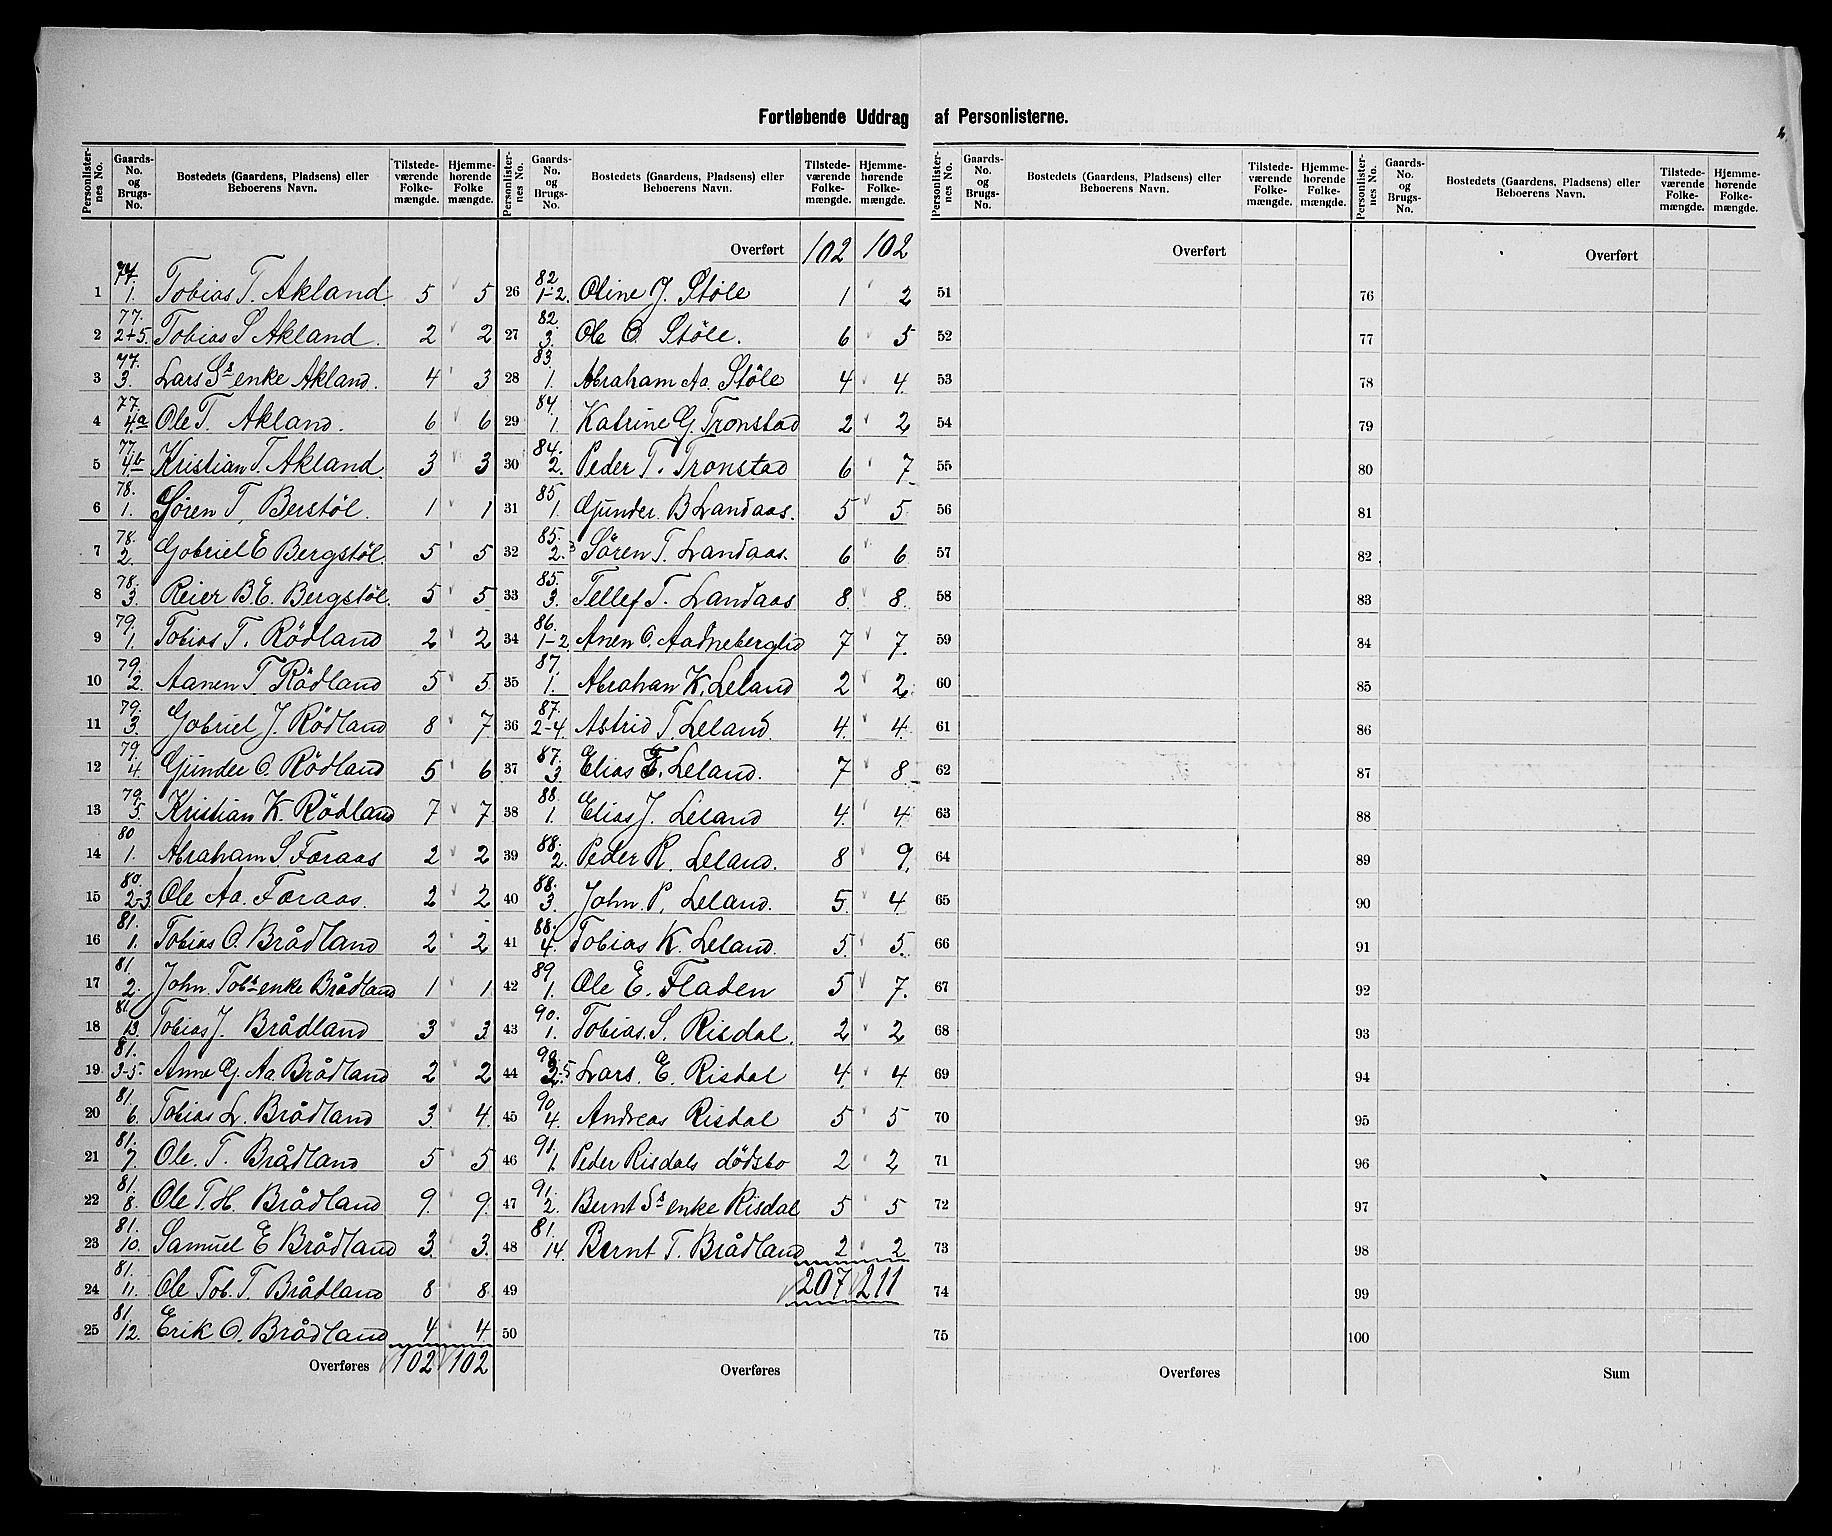 Fortløbende Uddrag af Personlisterne.
Personlister-nes No. Gaards-No. og Brugs-No. Bostedets (Gaardens, Pladsens) eller Beboerens Navn. Tilstede-værende Folke-mængde. Hjemme-hørende Folke mængde.
Personlister-nes No. Gaards-No. og Brugs-No. Bostedets (Gaardens, Pladsens) eller Beboerens Navn. Tilstede-værende Folke-mængde. Hjemme-hørende Folke-mængde.
Personlister-nes No. Gaards-No. og Brugs-No. Bostedets (Gaardens, Pladsens) eller Beboerens Navn. Tilstede-værende Folke-mængde. Hjemme-hørende Folke-mængde.
Personlister-nes No. Gaards-No. og Brugs-No. Bostedets (Gaardens, Pladsens) eller Beboerens Navn. Tilstede-værende Folke-mængde. Hjemme-hørende Folke-mængde.
1 77. 1. Tobias T. Akland 5 5
2 77. 2+5. Tobias S Akland. 2 2
3 77. 3. Lars Ss enke Akland. 4 3
4 77. 4a Ole T. Akland. 6 6
5 77. 4b Kristian T. Akland 3 3
6 78. 1. Søren T. Berstøl. 1 1
7 78. 2. Gabriel E Bergstøl. 5 5
8 78. 3. Reier B.E. Bergstøl. 5 5
9 79. 1. Tobias T. Rödland 2 2
10 79. 2. Aanen T. Rödland 5 5
11 79. 3. Gabriel J. Rödland 8 7
12 79. 4. Gunder O. Rödland 5 6
13 79. 5. Kristian K. Rödland 7 7
14 80 1. Abraham S. Faraas 2 2
15 80. 2-3 Ole Aa. Faraas. 2 2
16 81. 1. Tobias O. Brådland 2 2
17 81. 2. John Tobs enke Brådland 1 1
18 81. 13. Tobias J. Brådland 3 3
19 81. 3-5. Anne G. Aa. Brådland 2 2
20 81. 6. Tobias L. Brådland 3 4
21 81. 7. Ole. T. Brådland 5 5
22 81. 8. Ole T.H. Brådland 9 9
23 81. 10. Samuel E Brådland 3 3
24 81. 11. Ole Tob. T. Brådland 8 8
25 81. 12. Erik O. Brådland 4 4
Overføres 102 102
Overført 102 102
26 82 1-2. Oline J. Støle 1 2
27 82 3. Ole O. Støle. 6 5
28 83. 1. Abraham Aa. Støle 4 4
29 84. 1. Katrine G. Tronstad 2 2
30 84. 2. Peder T. Tronstad 6 7
31 85. 1. Gunder. B Landaas. 5 5
32 85. 2. Søren T. Landaas. 6 6
33 85. 3. Tellef T. Landaas 8 8
34 86. 1-2 Anen O. Aadneberglid 7 7
35 87. 1. Abraham K. Leland 2 2
36 87. 2-4 Astrid T. Leland. 4 4
37 87. 3 Elias Leland. 7 8
38 88. 1. Elias J. Leland 4 4
39 88. 2. Peder R. Leland. 8 9
40 88. 3. John. P. Leland. 5 4
41 88. 4. Tobias K. Leland. 5 5
42 89. 1. Ole E. Fladen 5 7
43 90. 1. Tobias. S. Risdal. 2 2
44 90. Lars. E. Risdal 4 4
45 90. 4. Andreas Risdal 5 5
46 91. 1. Peder Risdals dødsbo 2 2
47 91. 2. Bernt Ss enke Risdal 5 5
48 81. 14. Bernt T. Brådland 2 2
49 207 211
50
Overføres
Overført
51
52
53
54
55
56
57
58
59
60
61
62
63
64
65
66
67
68
69
70
71
72
73
74
75
Overføres
Overført
76
77
78
79
80
81
82
83
84
85
86
87
88
89
90
91
92
93
94
95
96
97
98
99
100
Sum